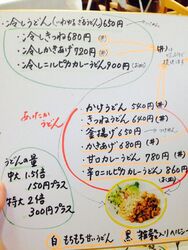 ・冷しうどん(いわゆるざるうどん) 650円
・冷しきつね 680円
・冷しかきあげ 920円
・冷しニルピリカレーうどん 900円
あったかいうどん
かけうどん 540円
きつねうどん 640円
釜揚げ 650円
かきあげ 680円
甘口カレーうどん 780円
辛口ニルピリカレーうどん 860円
うどんの量
中大 1.5倍
150円プラス
特大 2倍
300円プラス
白 もちもち甘いうどん 黒 雑穀入りヘルシー